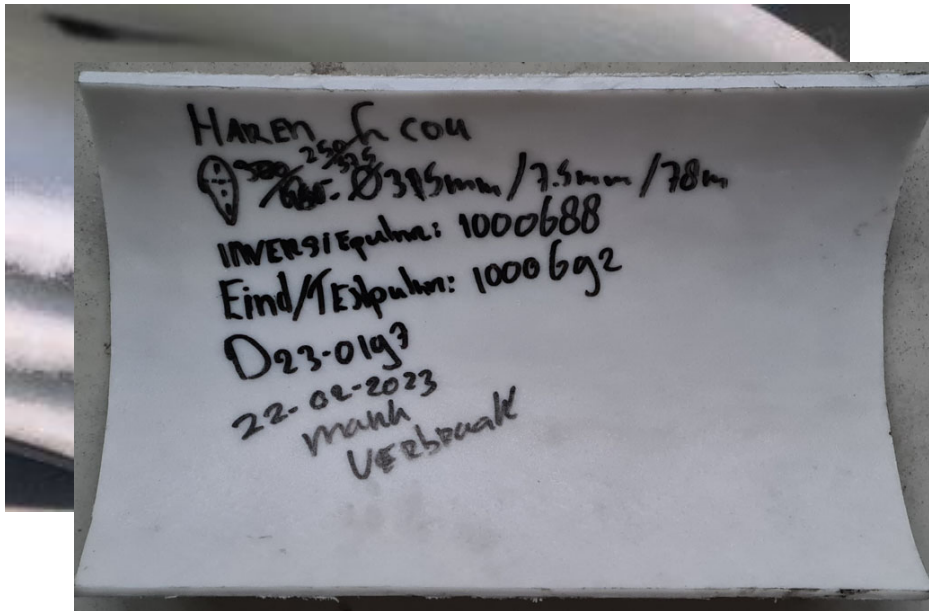 HAREN
250/375 Ø315mm/7.5mm/78m
INVERSIEputnr: 1000688
Eind/TEstputnr: 1000692
D23-0197
22-02-2023
VERbraak